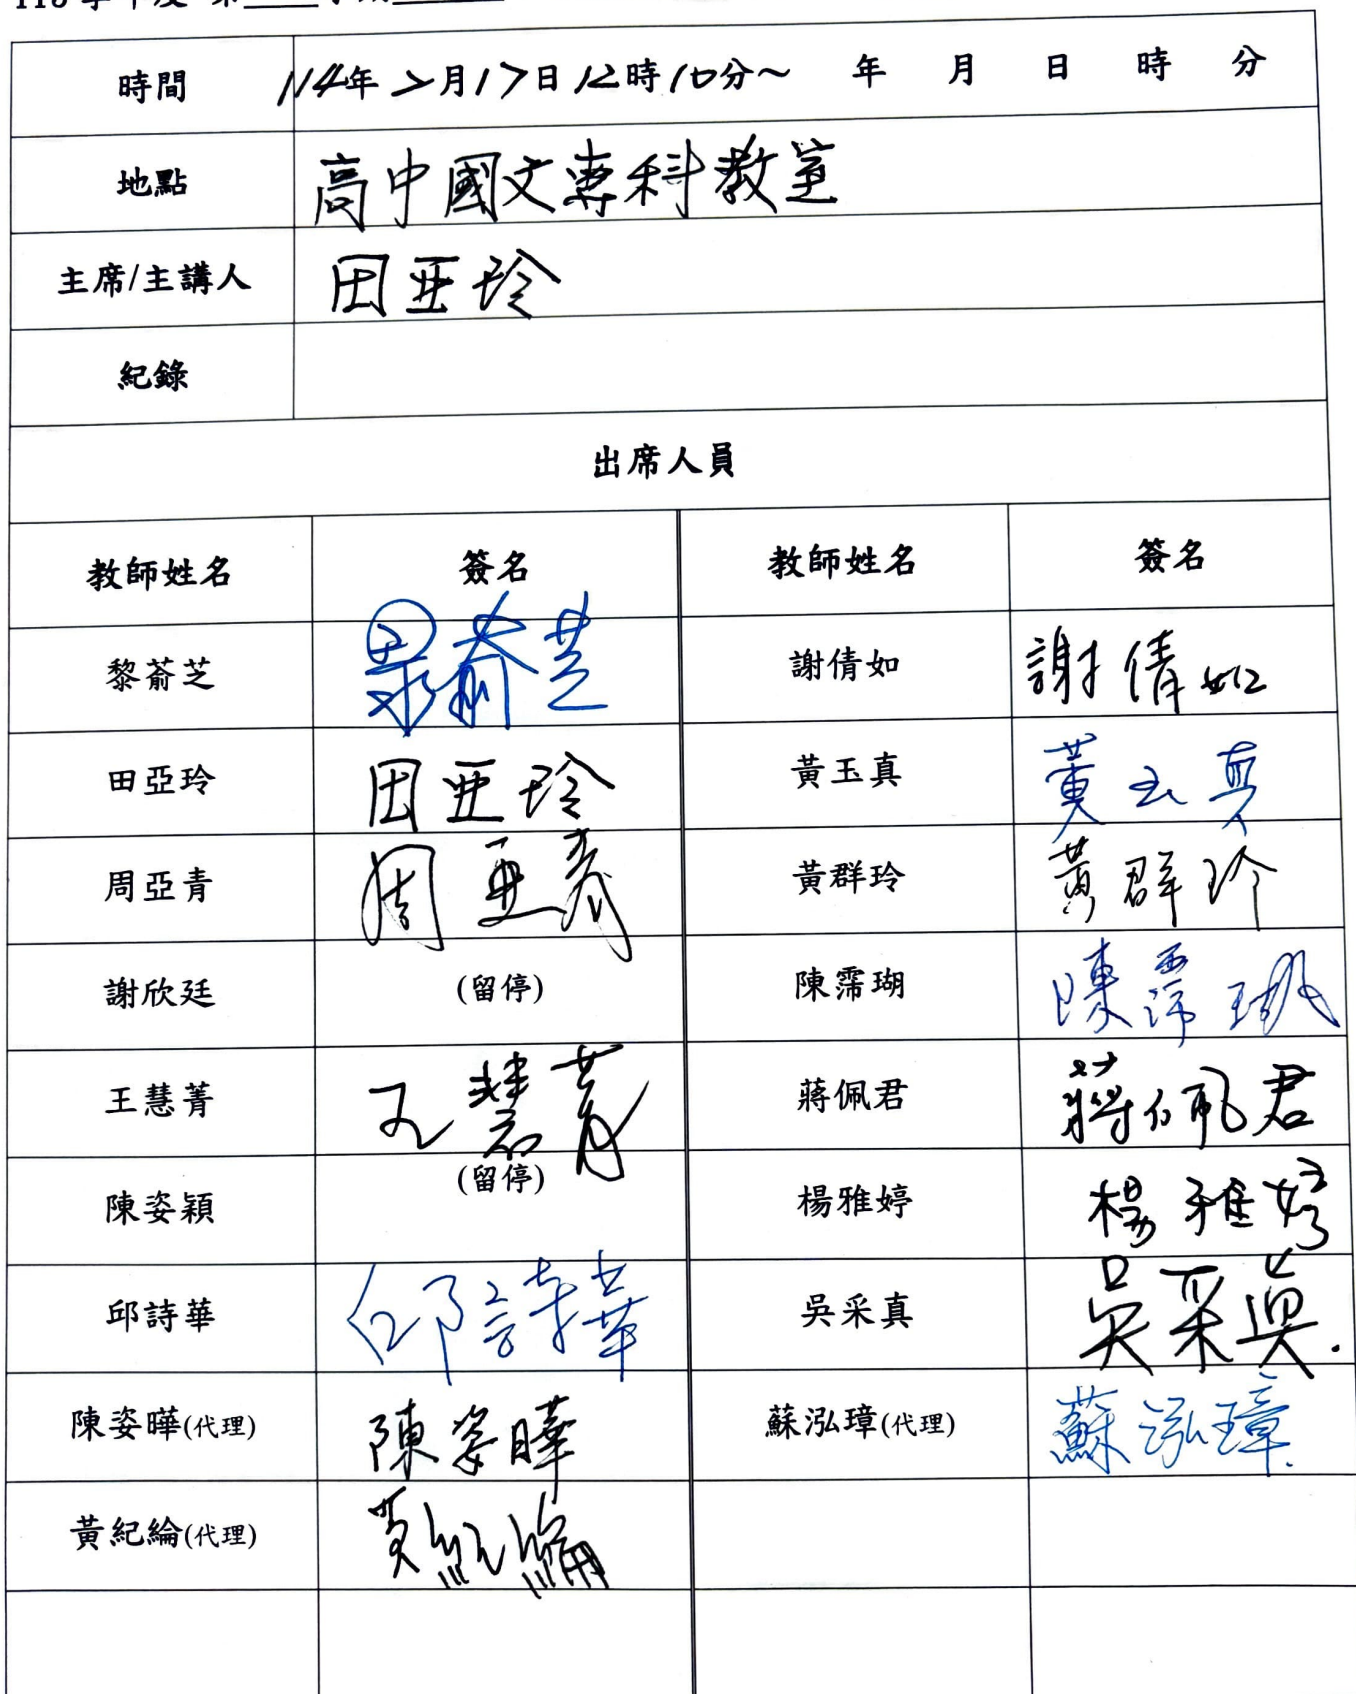 時間 114年2月17日12時10分～ 年 月 日 時 分
地點 高中國文專科教室
主席/主講人 田亞玲
紀錄
出席人員
教師姓名 簽名 教師姓名 簽名
黎萮芝 黎萮芝 謝倩如 謝倩如
田亞玲 田亞玲 黃玉真 黃玉真
周亞青 周亞青 黃群玲 黃群玲
謝欣廷 (留停) 陳霈瑚 陳霈瑚
王慧菁 王慧菁 蔣佩君 蔣佩君
陳姿穎 (留停) 楊雅婷 楊雅婷
邱詩華 邱詩華 吳采真 吳采真.
陳姿曄(代理) 陳姿曄 蘇泓璋(代理) 蘇泓璋.
黃紀綸(代理) 黃紀綸